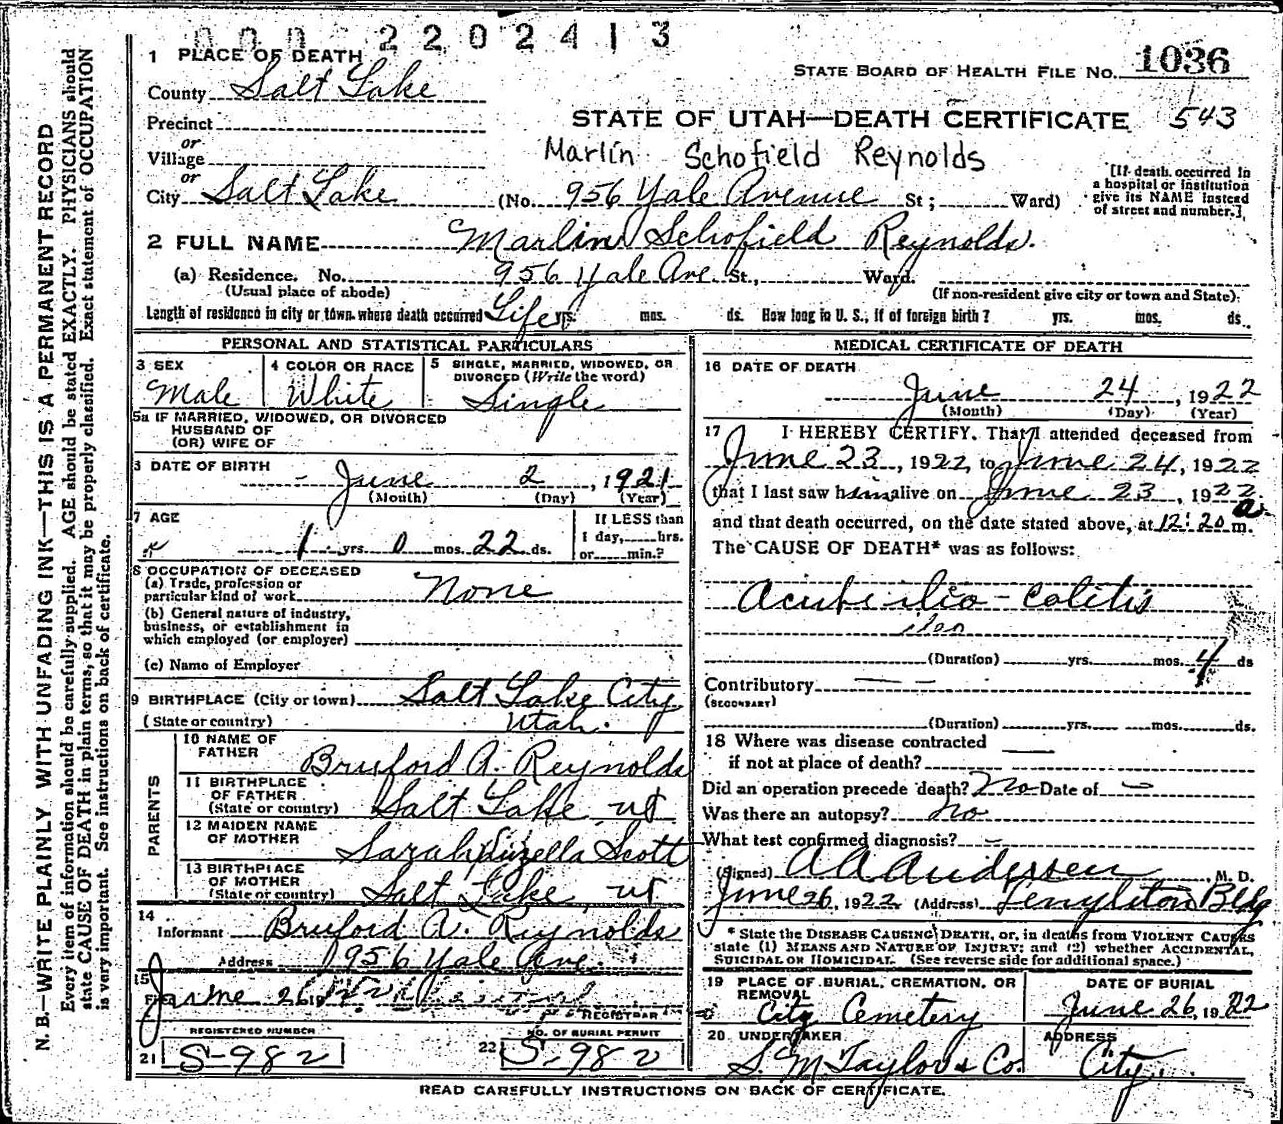 000 2202413
1 PLACE OF DEATH
STATE BOARD OF HEALTH FILE No. 1036
County Salt Lake
STATE OF UTAH—DEATH CERTIFICATE 543
Precinct
or
Village
Marlin Schofield Reynolds
or
City Salt Lake (No. 956 Yale Avenue St; Ward)
[If death occurred in a hospital or institution give its NAME instead of street and number.]
2 FULL NAME Marlin Schofield Reynolds.
(a) Residence. No. 956 Yale Ave St., Ward.
(Usual place of abode) (If non-resident give city or town and State)
Length of residence in city or town where death occurred Life yrs. mos. ds. How long in U. S., if of foreign birth? yrs. mos. ds.
PERSONAL AND STATISTICAL PARTICULARS
3 SEX Male
4 COLOR OR RACE White
5 SINGLE, MARRIED, WIDOWED, OR DIVORCED (Write the word) Single
5a IF MARRIED, WIDOWED, OR DIVORCED
HUSBAND OF
(OR) WIFE OF
DATE OF BIRTH June 2, 1921
(Month) (Day) (Year)
7 AGE
1 yrs. 0 mos. 22 ds.
If LESS than
1 day, hrs.
or min.?
8 OCCUPATION OF DECEASED
(a) Trade, profession or
particular kind of work None
(b) General nature of industry,
business, or establishment in
which employed (or employer)
(c) Name of Employer
9 BIRTHPLACE (City or town) Salt Lake City
(State or country) Utah.
PARENTS
10 NAME OF
FATHER Bruford A. Reynolds
11 BIRTHPLACE
OF FATHER
(State or country) Salt Lake, ut
12 MAIDEN NAME
OF MOTHER Sarah Scott
13 BIRTHPLACE
OF MOTHER
(State or country) Salt Lake, ut
14
Informant Bruford A. Reynolds
Address 956 Yale Ave.
15
June 26
REGISTRAR
REGISTERED NUMBER
21 S-982
NO. OF BURIAL PERMIT
22 S-982
MEDICAL CERTIFICATE OF DEATH
16 DATE OF DEATH
June 24, 1922
(Month) (Day) (Year)
17 I HEREBY CERTIFY, That I attended deceased from
June 23, 1922, to June 24, 1922
that I last saw him alive on June 23, 1922
and that death occurred, on the date stated above, at 12:20 a m.
The CAUSE OF DEATH* was as follows:
Acute ilio-Colitis
(Duration) yrs. mos. 4 ds
Contributory
(SECONDARY)
(Duration) yrs. mos. ds.
18 Where was disease contracted
if not at place of death?
Did an operation precede death? No Date of
Was there an autopsy? No
What test confirmed diagnosis?
(Signed) A A Andersen M. D.
June 26, 1922 (Address) Templeton Bldg
* State the DISEASE CAUSING DEATH, or, in deaths from VIOLENT CAUSES
state (1) MEANS AND NATURE OF INJURY; and (2) whether ACCIDENTAL,
SUICIDAL OR HOMICIDAL. (See reverse side for additional space.)
19 PLACE OF BURIAL, CREMATION, OR
REMOVAL
City Cemetery
DATE OF BURIAL
June 26, 1922
20 UNDERTAKER
S. M. Taylor & Co.
ADDRESS
City.
READ CAREFULLY INSTRUCTIONS ON BACK OF CERTIFICATE.
N. B.—WRITE PLAINLY WITH UNFADING INK—THIS IS A PERMANENT RECORD
Every item of information should be carefully supplied. AGE should be stated EXACTLY. PHYSICIANS should
state CAUSE OF DEATH in plain terms, so that it may be properly classified. Exact statement of OCCUPATION
is very important. See instructions on back of certificate.